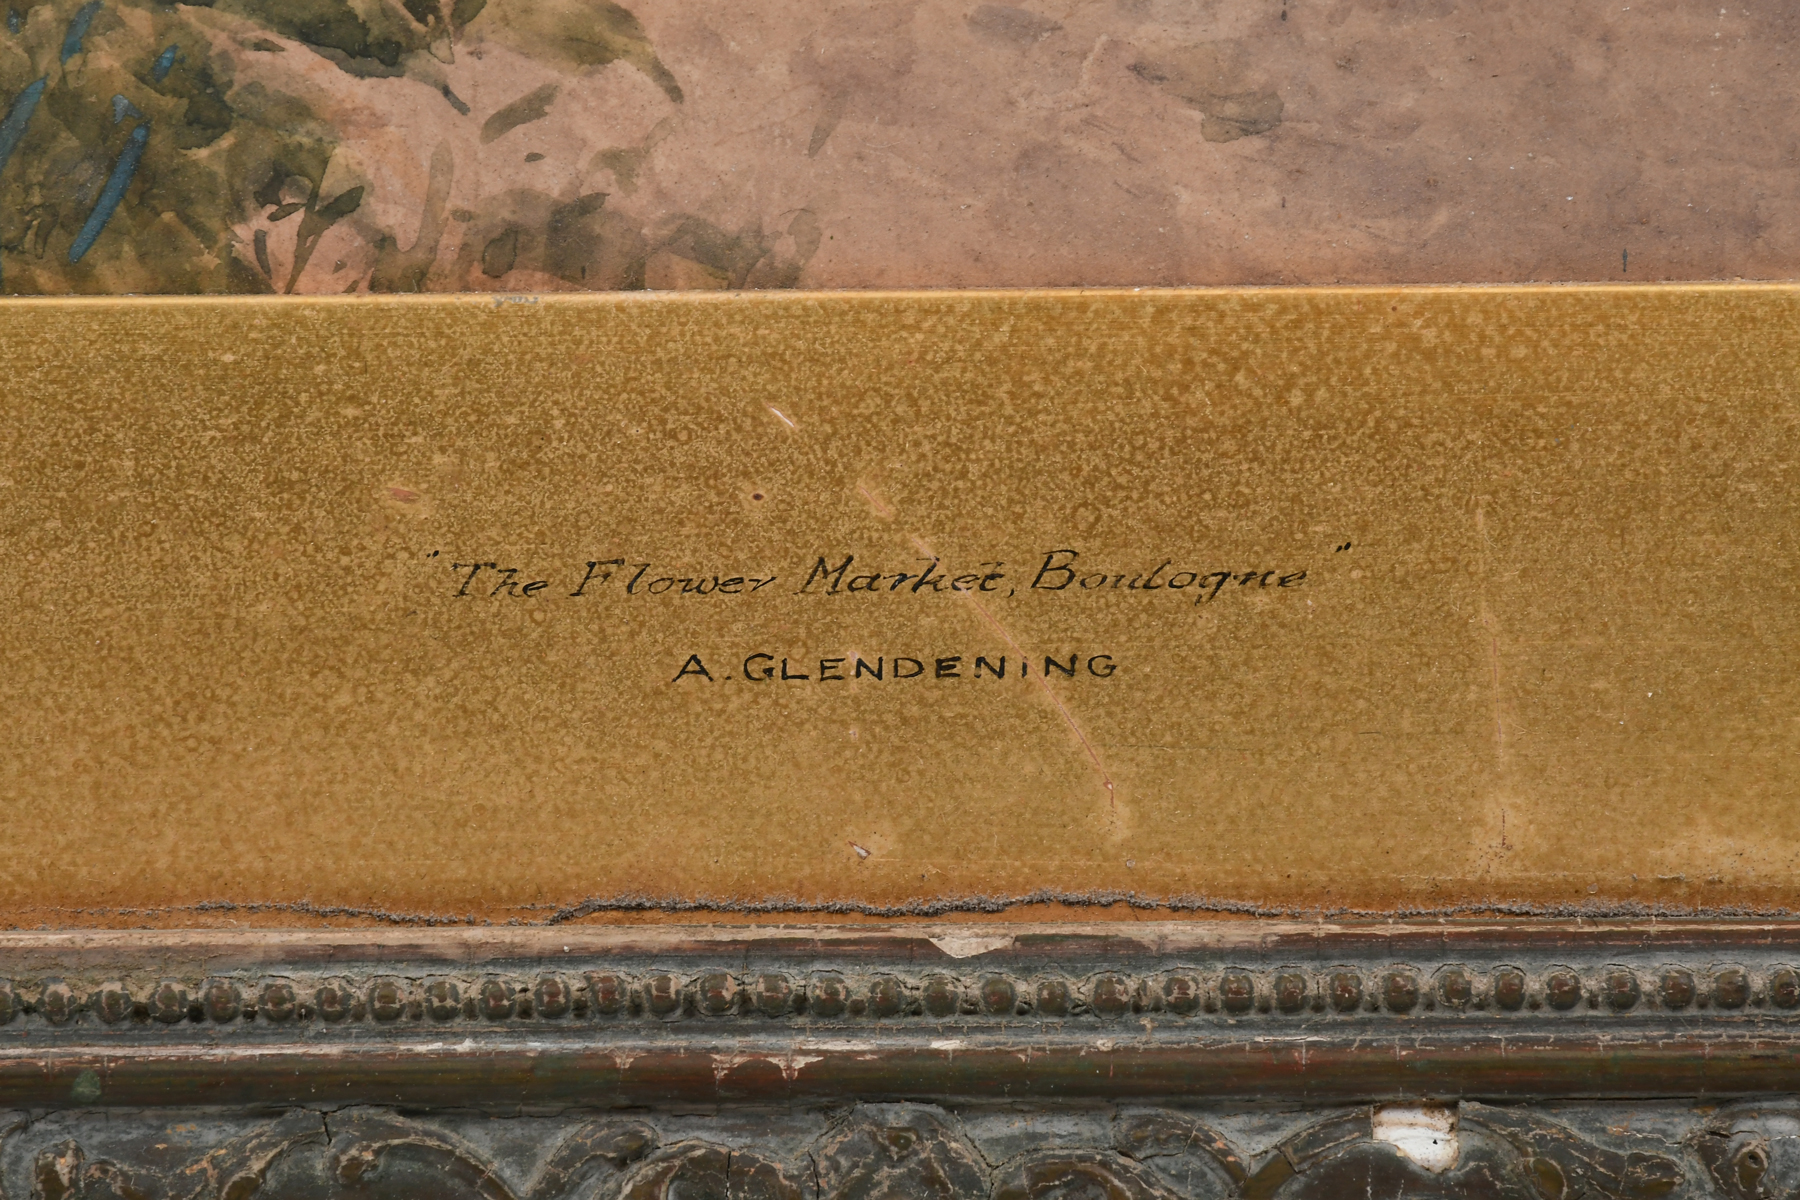 "The Flower Market, Boulogne"
A. GLENDENING